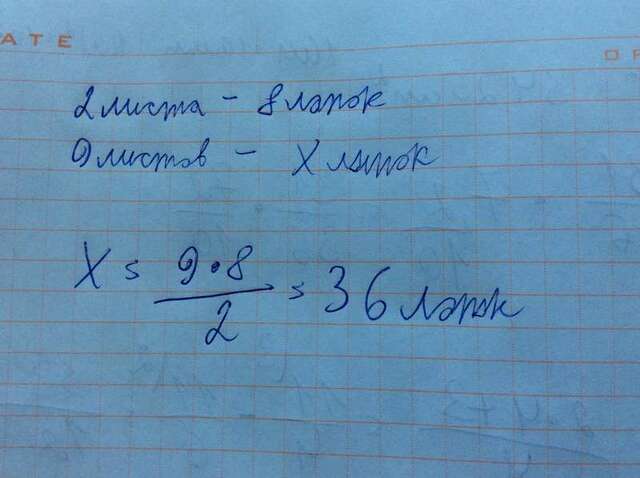 ATE
2 листа – 8 лапок
9 листов – X лапок
X = 9·8 / 2 = 36 лапок